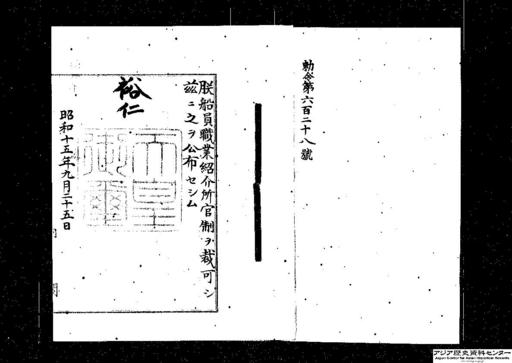 勅令第六百二十八號
朕船員職業紹介所官制ヲ裁可シ
茲ニ之ヲ公布セシム
裕仁
天皇
御璽
昭和十五年九月二十五日
アジア歴史資料センター
Japan Center for Asian Historical Records